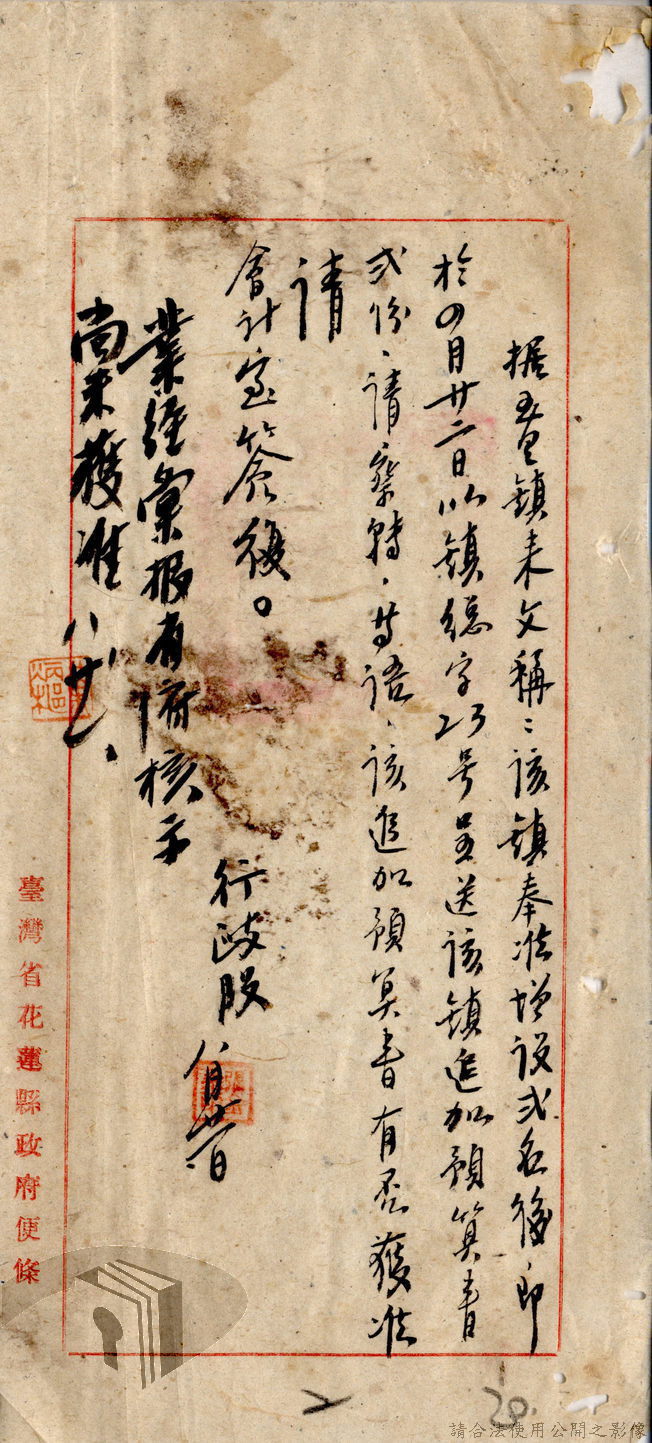 據玉里鎮来文稱：該鎮奉准增設弍名後，即
於四月廿二日以鎮總字23号呈送該鎮追加預算書
弍份，請察轉，等語，該追加預算書有否獲准
請
會計室簽復。
行政股
業經彙報省府核示
尚未獲准
臺灣省花蓮縣政府便條
2
20.
請合法使用公開之影像